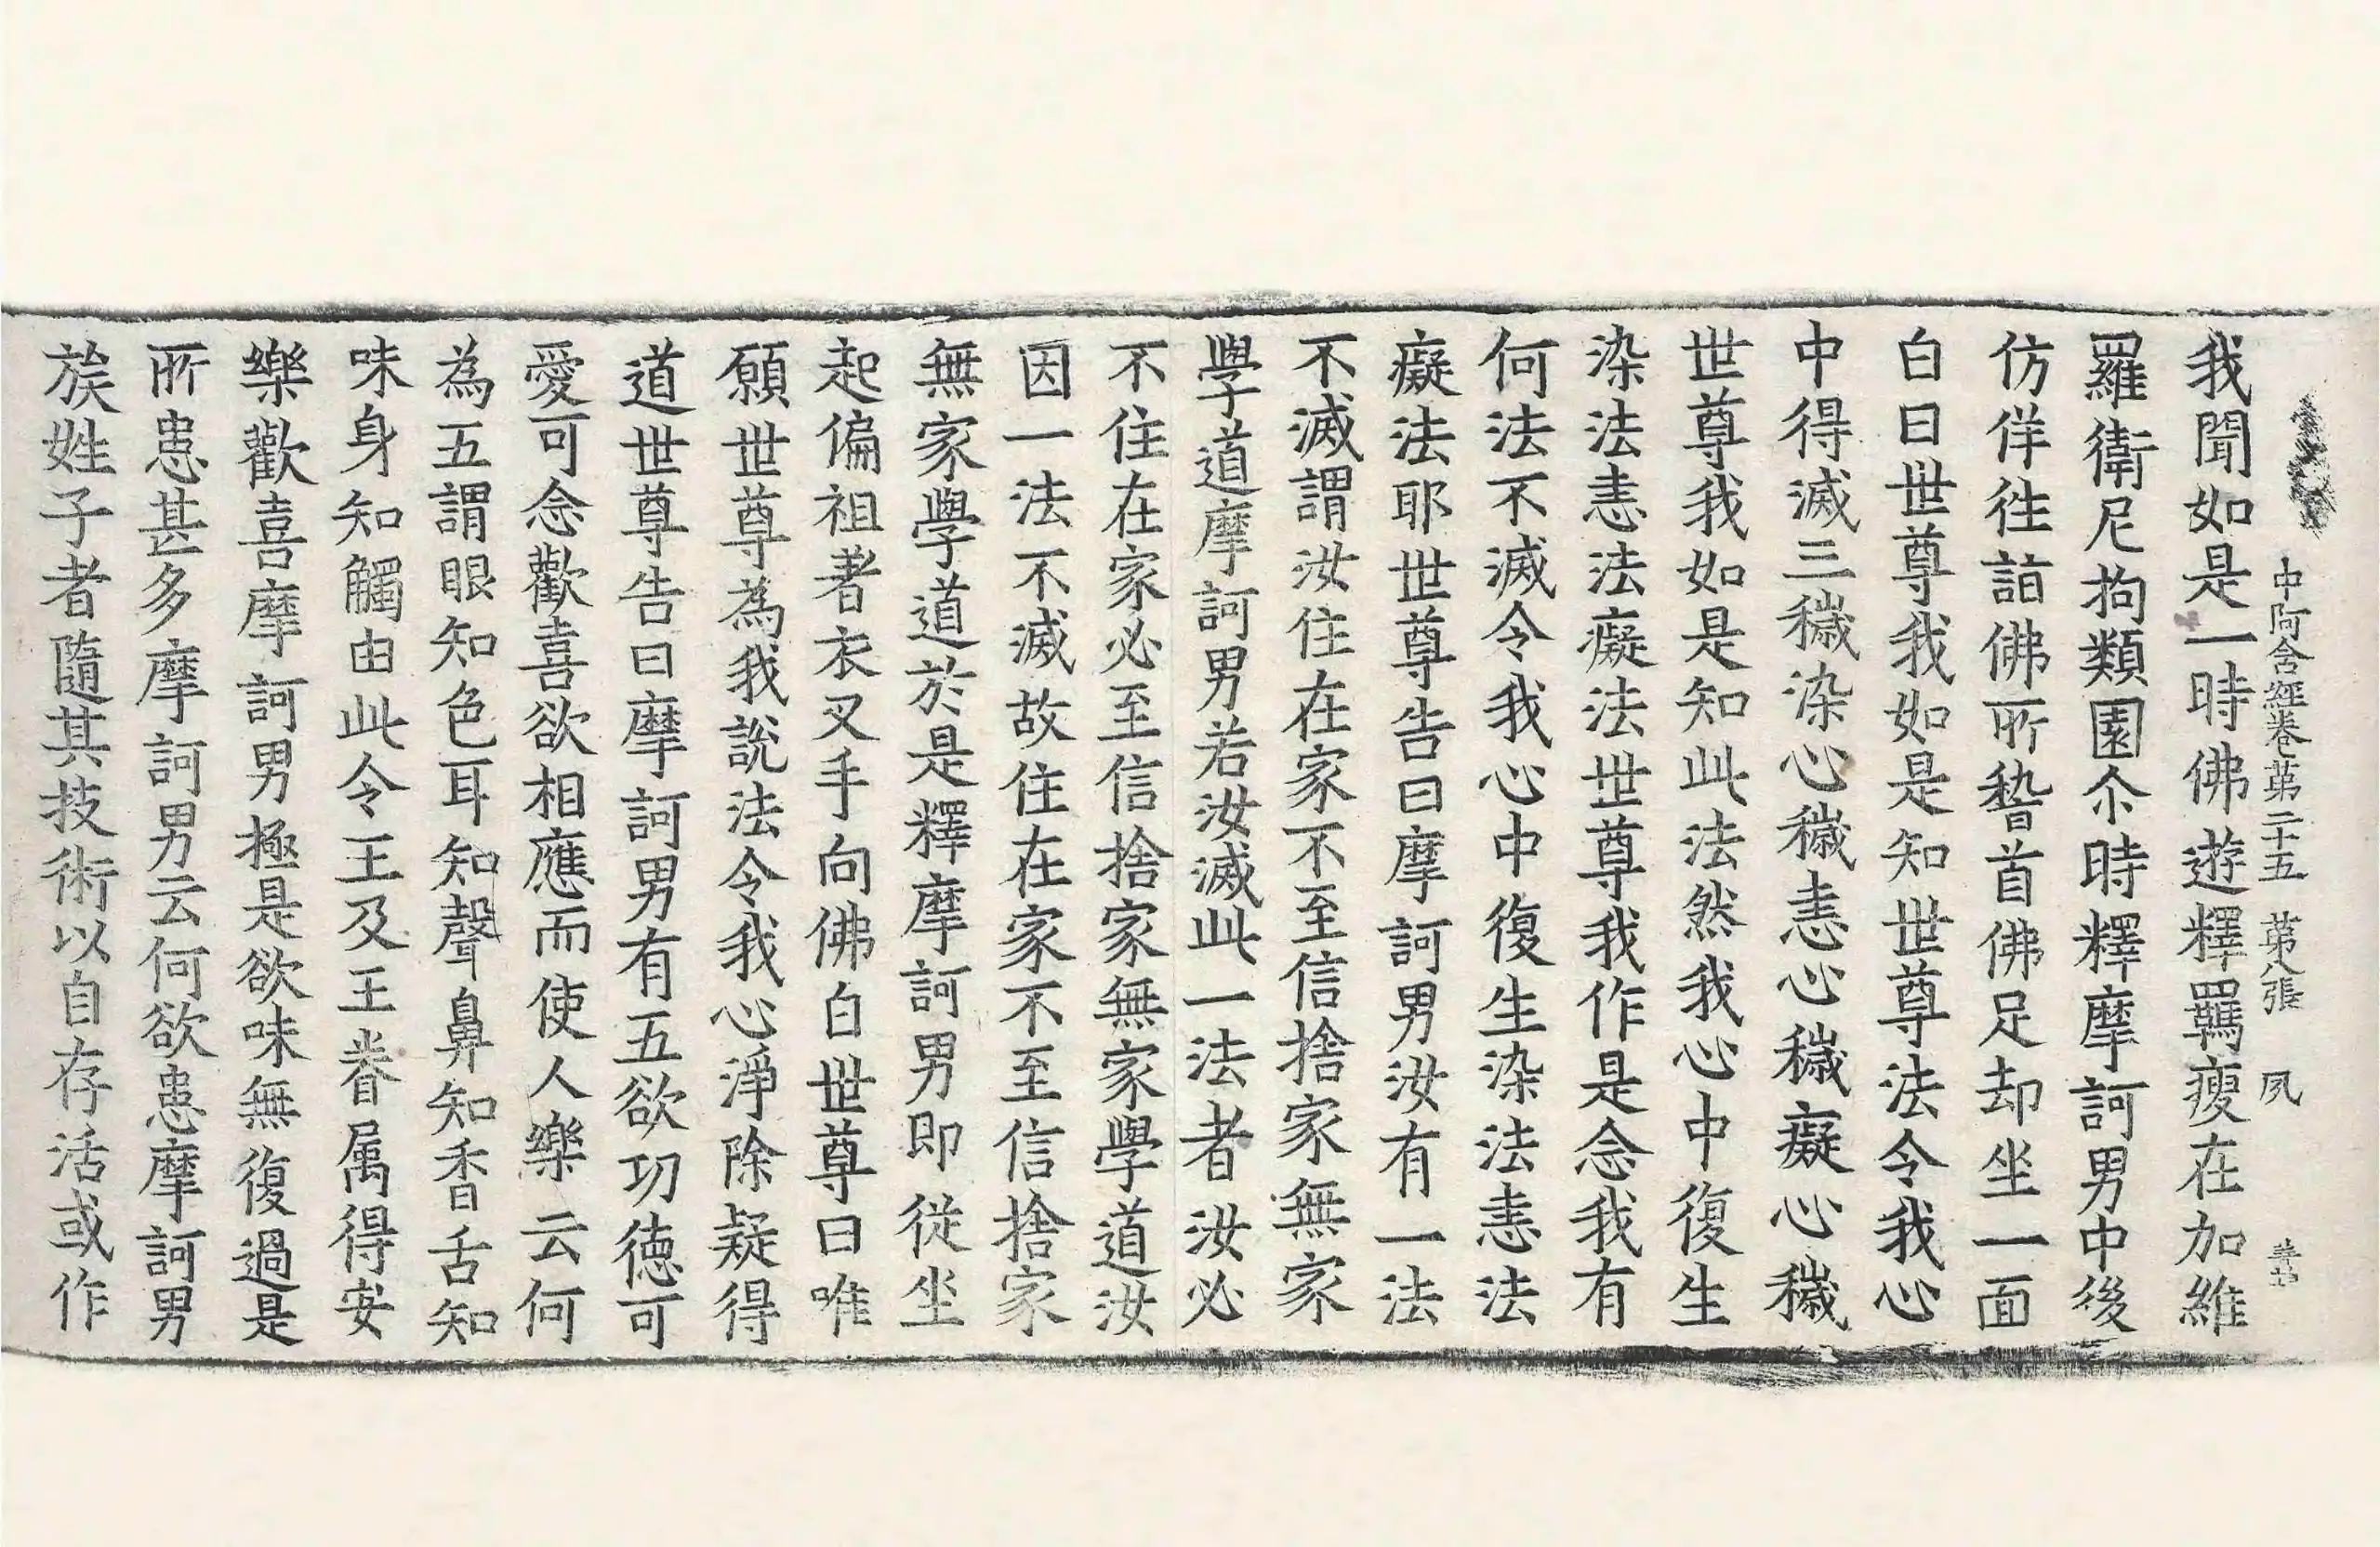 中阿含經卷苐二十五 苐八張 夙
我聞如是一時佛遊釋羈瘦在加維
羅衛尼拘類園尒時釋摩訶男中後
仿佯徃詣佛所𥡳首佛足却坐一面
白曰世尊我如是知世尊法令我心
中得滅三穢染心穢恚心穢癡心穢
世尊我如是知此法然我心中復生
染法恚法癡法世尊我作是念我有
何法不滅令我心中復生染法恚法
癡法耶世尊告曰摩訶男汝有一法
不滅謂汝住在家不至信捨家無家
學道摩訶男若汝滅此一法者汝必
不住在家必至信捨家無家學道汝
因一法不滅故住在家不至信捨家
無家學道於是釋摩訶男即從坐
起偏袒著衣叉手向佛白世尊曰唯
願世尊為我說法令我心淨除疑得
道世尊告曰摩訶男有五欲功德可
愛可念歡喜欲相應而使人樂云何
為五謂眼知色耳知聲鼻知香舌知
味身知觸由此令王及王眷属得安
樂歡喜摩訶男極是欲味無復過是
所患甚多摩訶男云何欲患摩訶男
族姓子者隨其技術以自存活或作